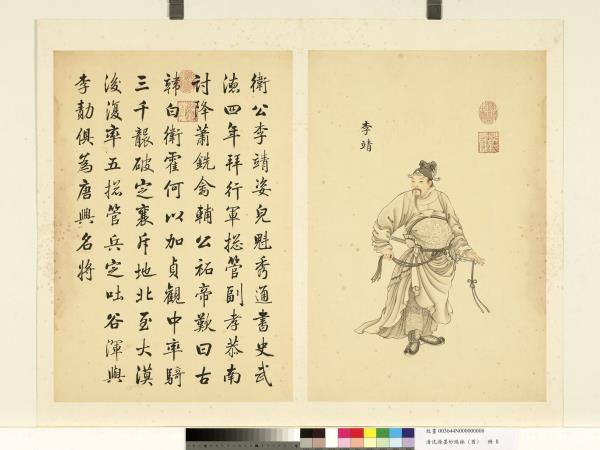 李靖
衛公李靖姿皃魁秀通書史武
德四年拜行軍揔管副孝恭南
討降蕭銑禽輔公祏帝歎曰古
韓白衛霍何以加貞觀中率騎
三千襲破定襄斥地北至大漠
後復率五揔管兵定吐谷渾與
李勣俱為唐興名將
故畫 003644N000000008
清沈源墨妙珠林(酉) 冊 8